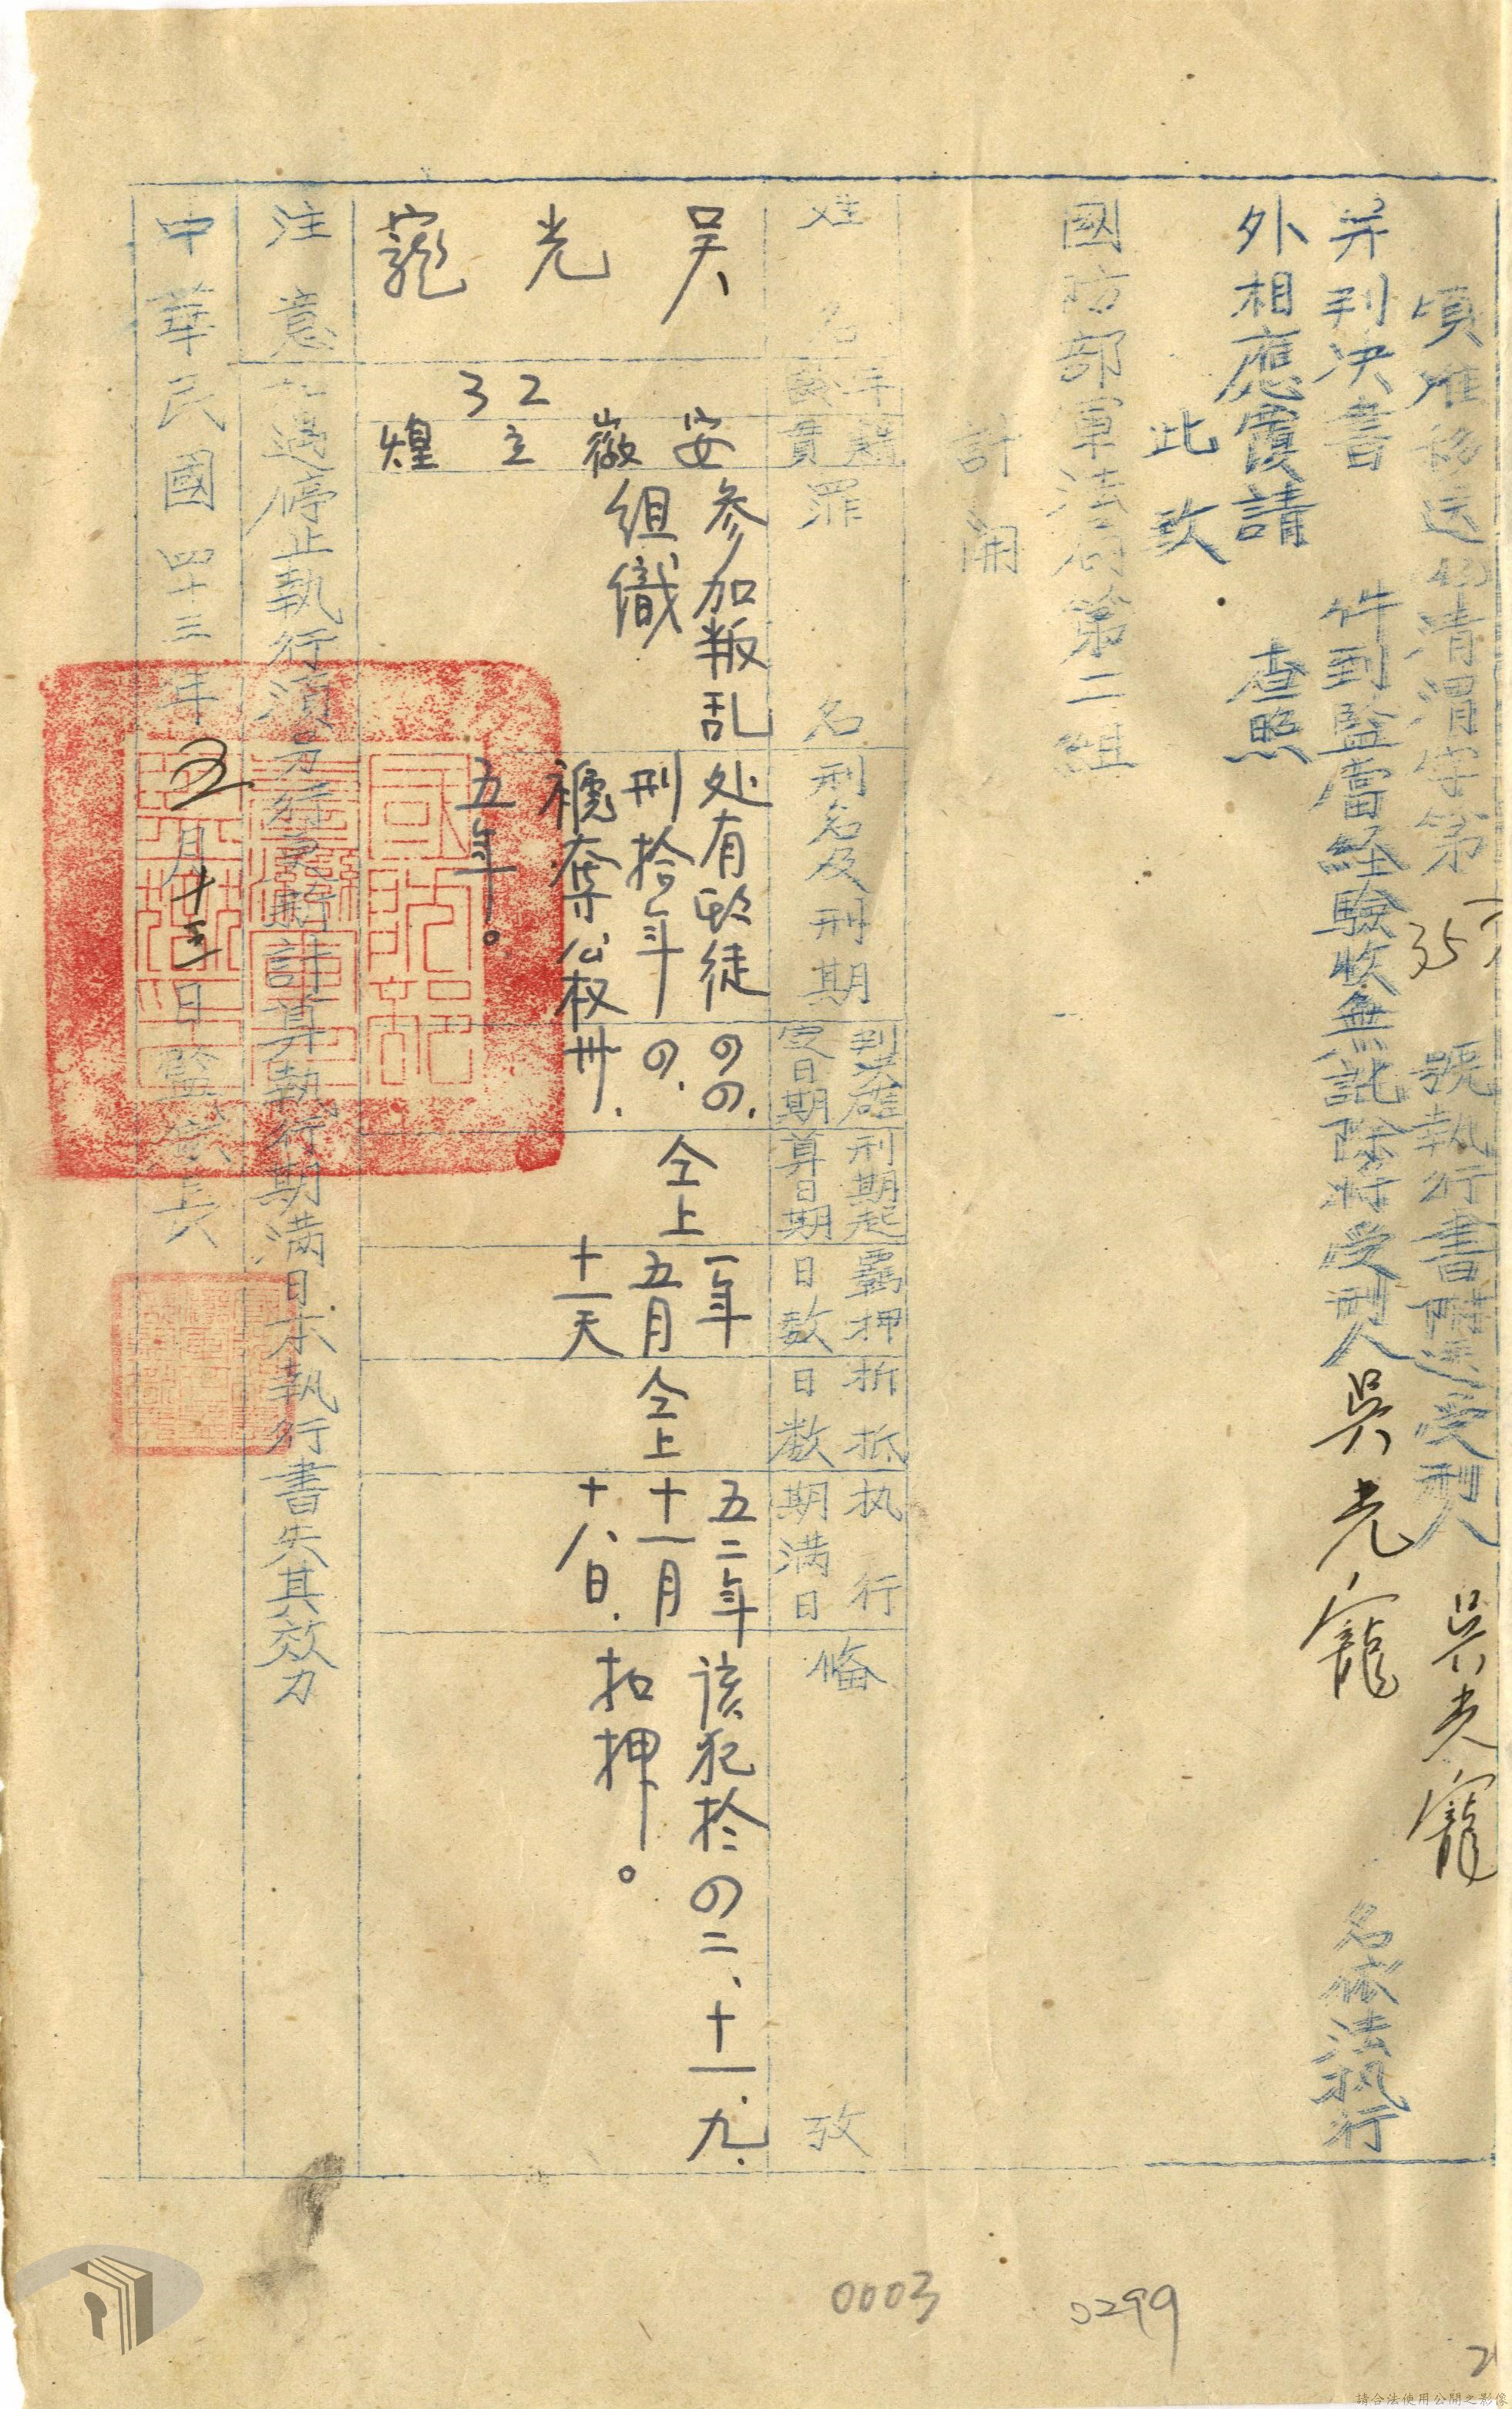 頃准移送(43)清渭字第 35 號執行書附送受刑人 吳光寵
并判决書 件到監當経驗收無訛除將受刑人 吳光寵 名依法执行
外相應覆請 查照
此致
國防部軍法局第二組
計開
姓名
年齡
籍貫
罪名
刑名及刑期
判决確定日期
刑期起算日期
羈押日数
折抵日数
执行期满日
偹攷
吳光寵
32
安徽立煌
参加叛乱
組織
处有期徒
刑拾年
褫奪公权
五年。
四四.
四、
卅.
仝上
一年
五月
十一天
仝上
五二年
十一月
十八日.
该犯於四二、十一.九.
扣押。
注意
停止執行須另行更新計算執行期满日本執行書失其效力
中華民國四十三年五月十三日監獄長
0003
0299
請合法使用公開之影像